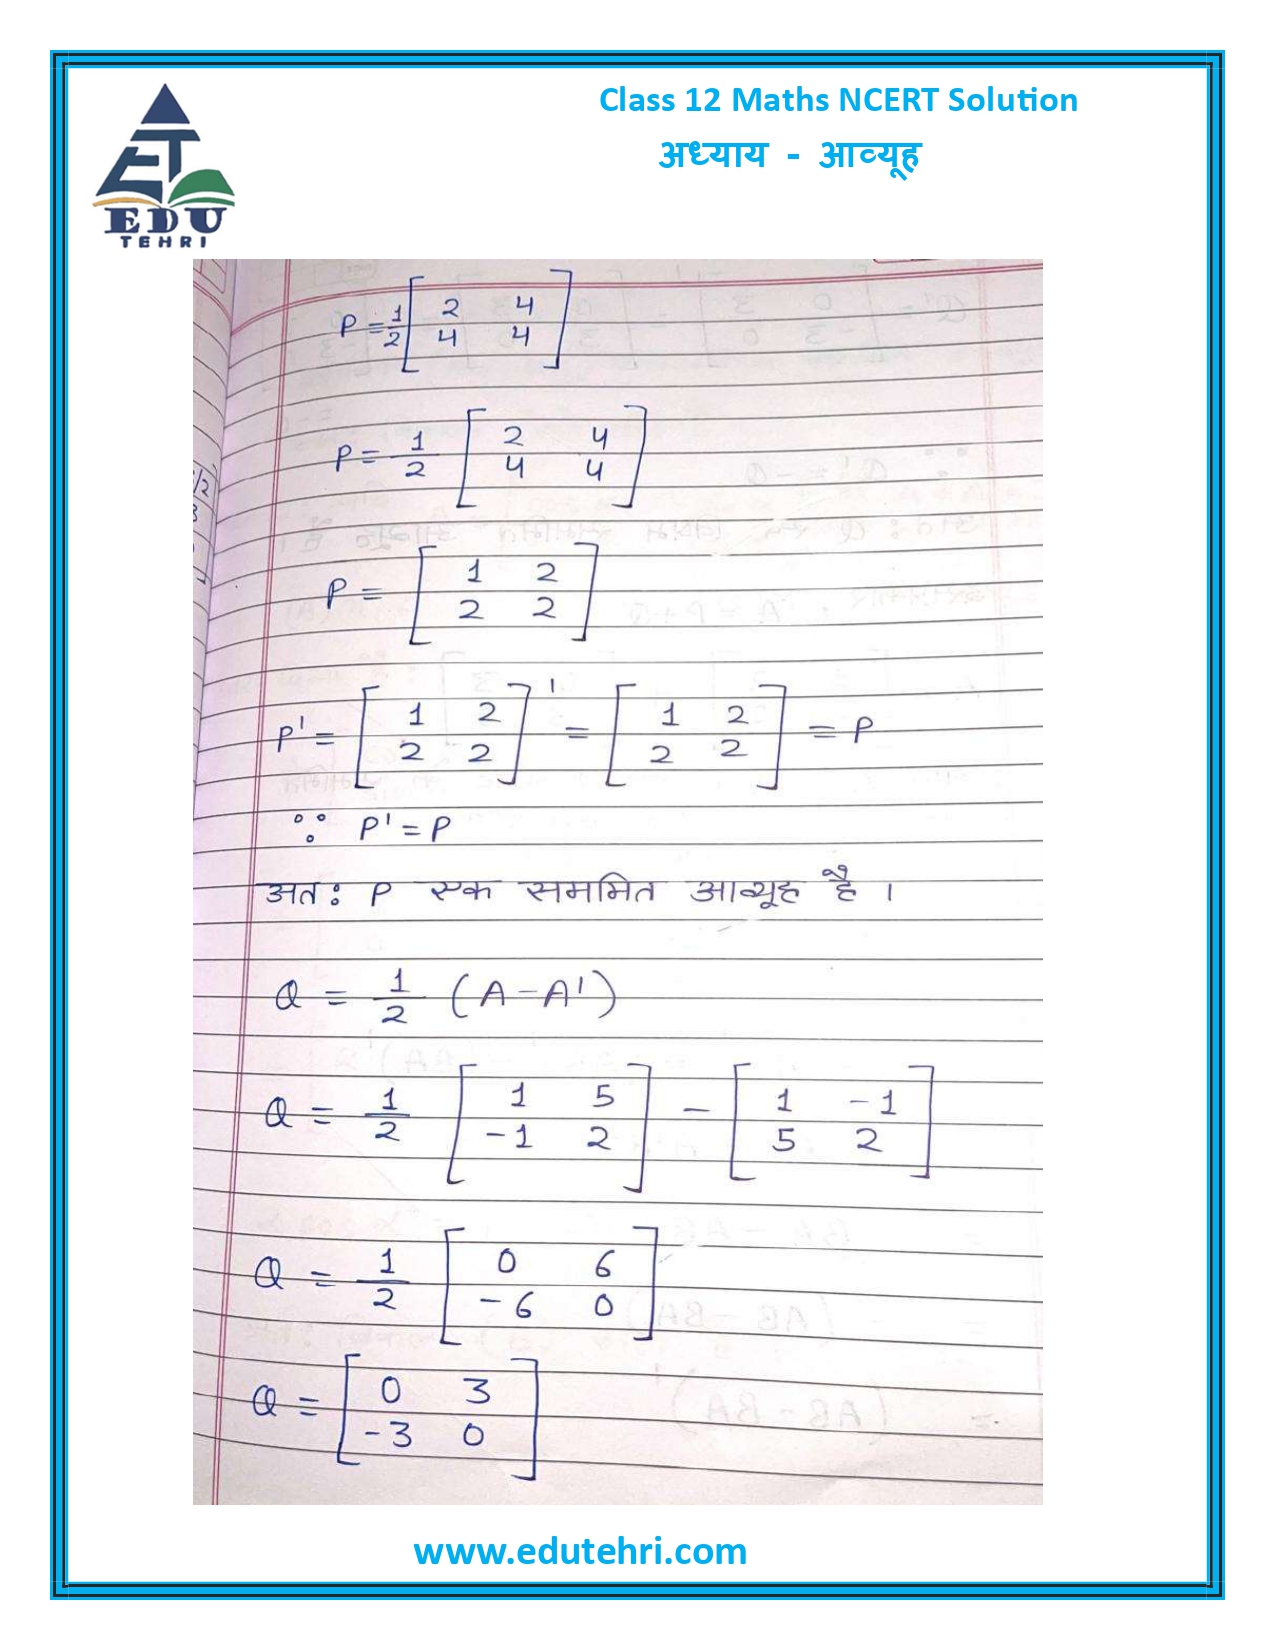 Class 12 Maths NCERT Solution
अध्याय - आव्यूह
EDU
TEHRI
P = 1/2 [ 2 4
4 4 ]
P = 1/2 [ 2 4
4 4 ]
P = [ 1 2
2 2 ]
P' = [ 1 2
2 2 ]' = [ 1 2
2 2 ] = P
∵ P' = P
अतः P एक सममित आव्यूह है ।
Q = 1/2 (A - A')
Q = 1/2 [ 1 5
-1 2 ] - [ 1 -1
5 2 ]
Q = 1/2 [ 0 6
-6 0 ]
Q = [ 0 3
-3 0 ]
www.edutehri.com